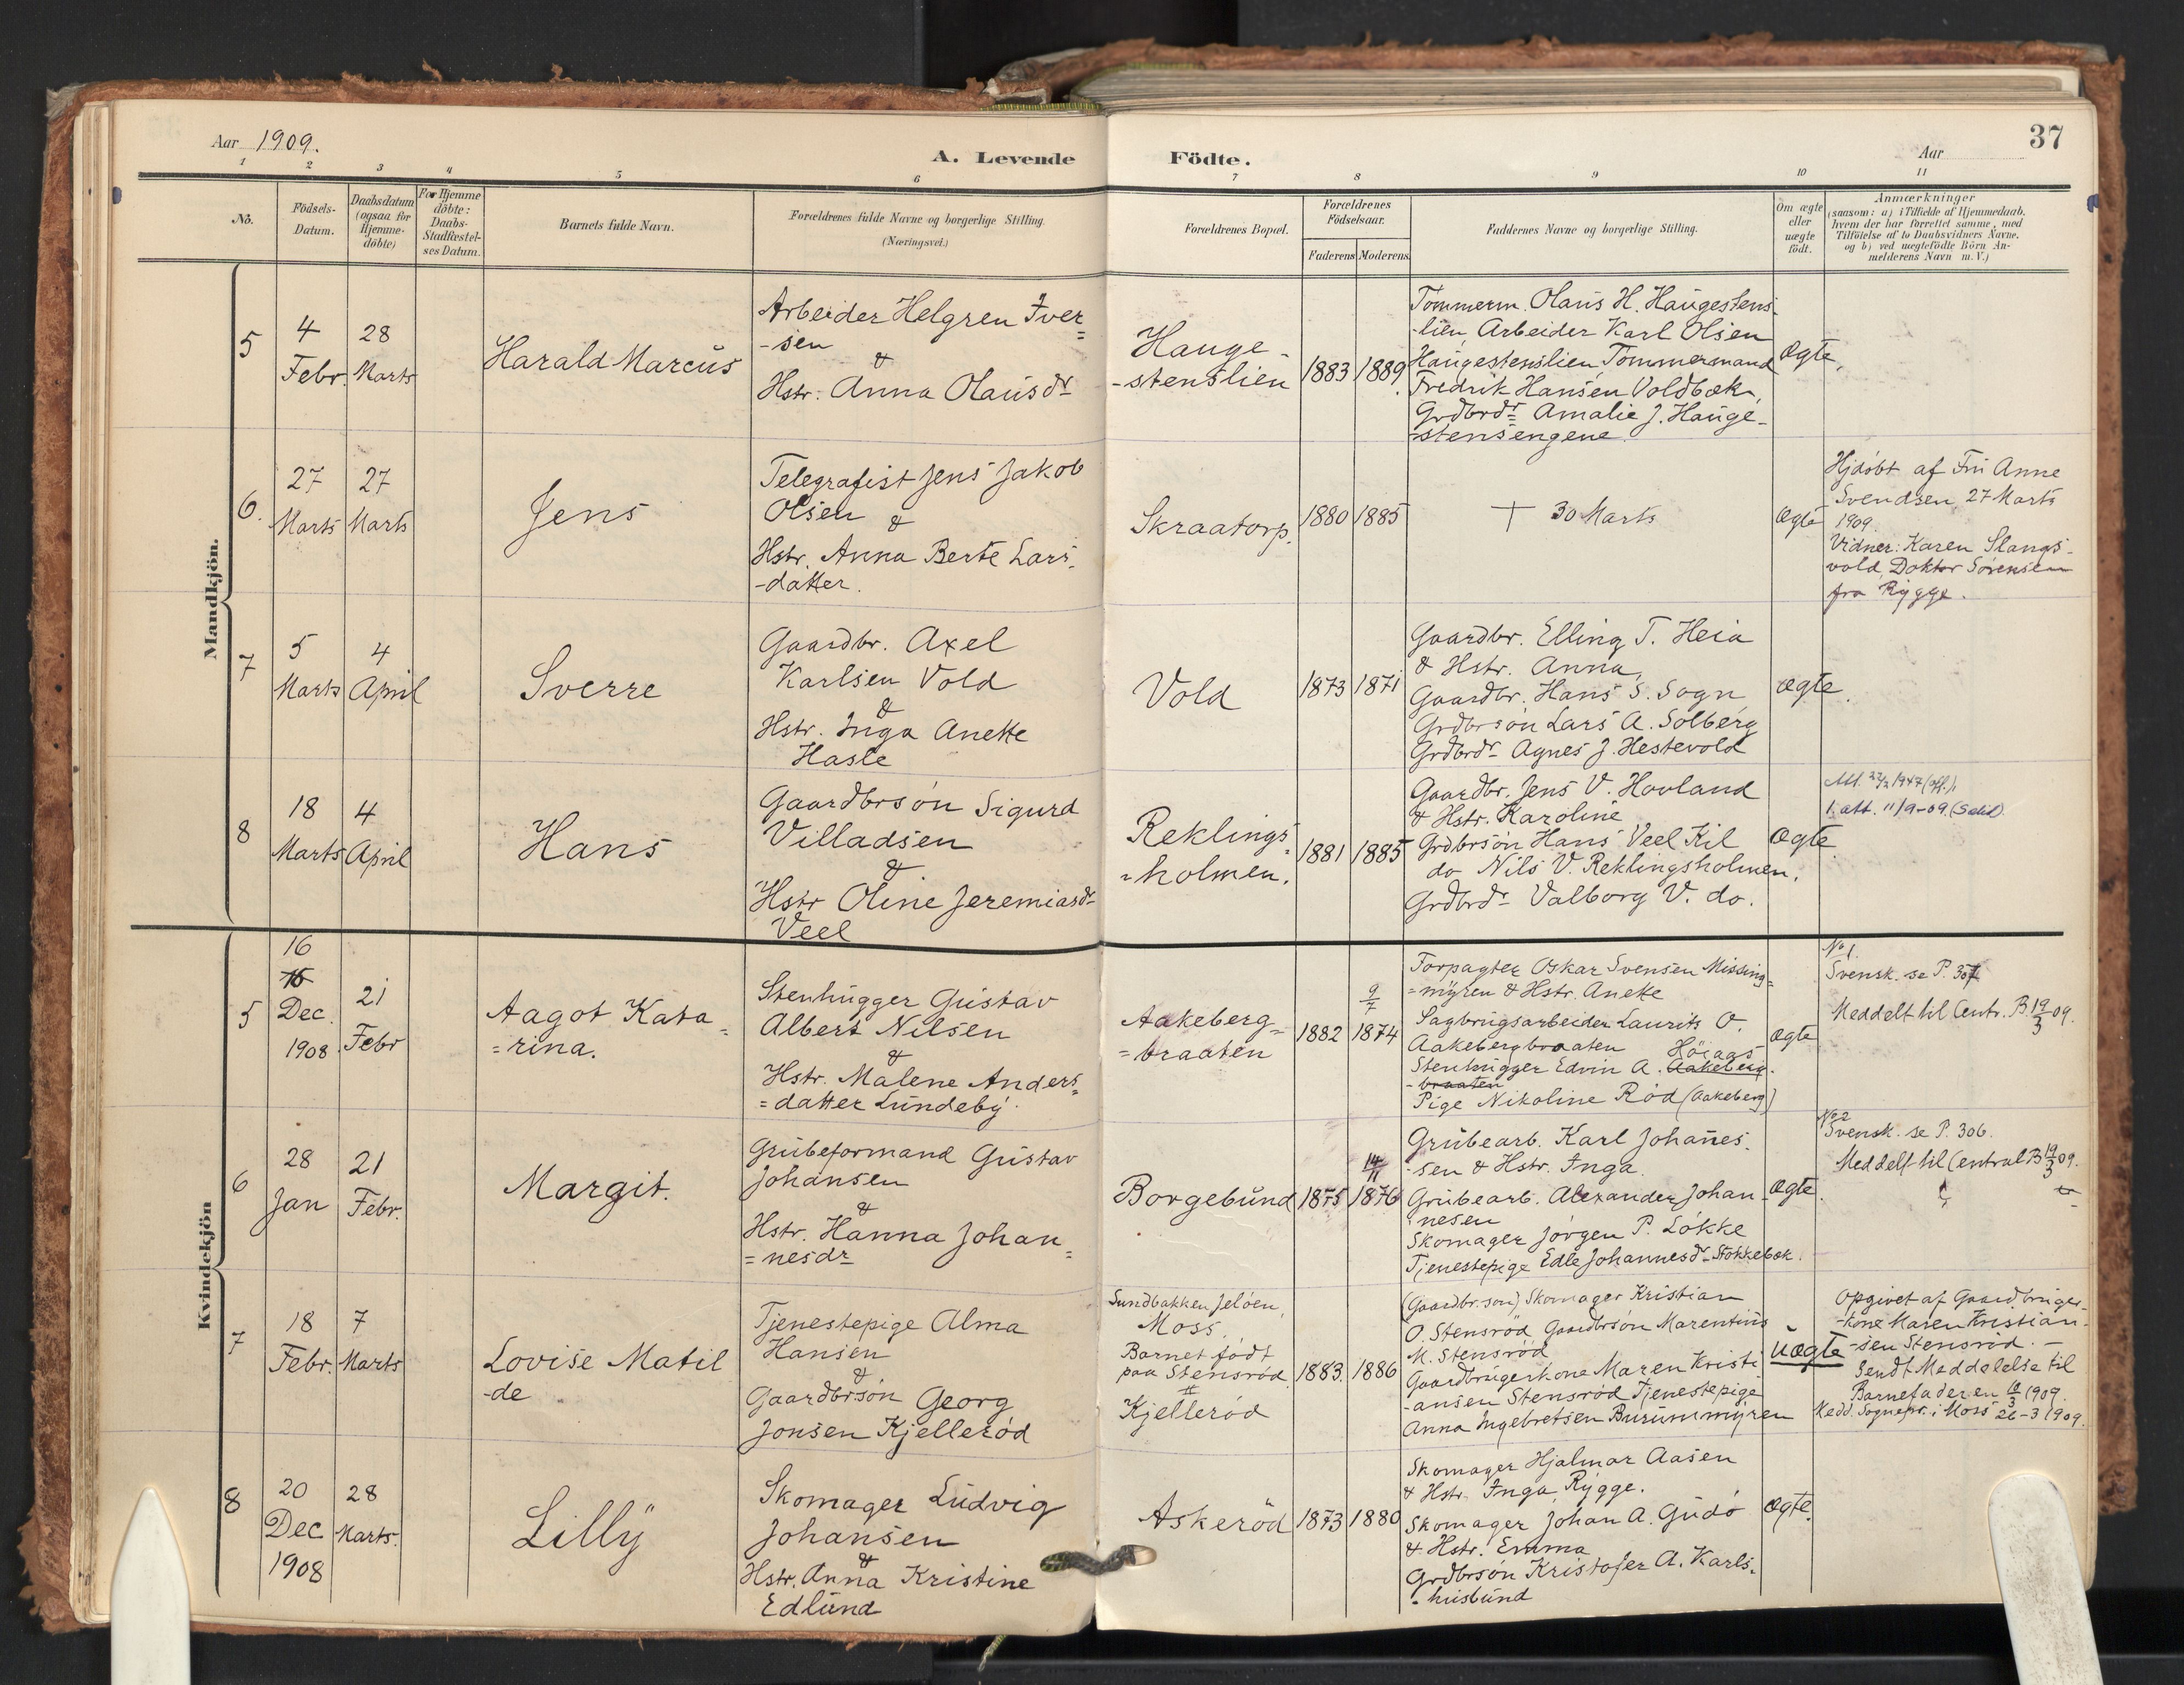 Aar 1909.
A. Levende Födte.
Aar
37
1 2 3 4 5 6 7 8 9 10 11
No.
Födsels-
Datum.
Daabsdatum
(ogsaa for
Hjemme-
döbte)
For Hjemme
döbte:
Daabs-
Stadfæstel-
ses Datum.
Barnets fulde Navn.
Forældrenes fulde Navne og borgerlige Stilling.
(Næringsvei.)
Forældrenes Bopæl.
Forældrenes
Födselsaar.
Faderens Moderens
Faddernes Navne og borgerlige Stilling.
Om ægte
eller
uægte
födt.
Anmærkninger
(saasom: a) i Tilfælde af Hjemmedaab,
hvem der har forrettet samme, med
Tilföielse af to Daabsvidners Navne,
og b) ved uægtefödte Börn An-
melderens Navn m.V.)
Mandkjön.
5
4
Febr.
28
Marts
Harald Marcus
Arbeider Helgren Iver=
-sen
&
Hstr. Anna Olausdr
Hauge-
-stenslien
1883 1889
Tömmerm. Olaus H. Haugestens-
-lien, Arbeider Karl Olsen
Haugestenslien, Tömmermand
Fredrik Hansen Voldbæk,
Grdbrdr Amalie J. Hauge-
-stensengene.
Ægte.
6.
27
Marts
27
Marts
Jens
Telegrafist Jens Jakob
Olsen
&
Hstr. Anna Berte Lars-
-datter.
Skraatorp.
1880 1885
† 30 Marts
Ægte
Hjdöbt af Fru Anne
Svendsen 27 Marts
1909.
Vidner: Karen Slangs-
vold, Doktor Sörensen
fra Rygge.
7
5
Marts
4
April
Sverre
Gaardbr. Axel
Karlsen Vold
&
Hstr. Inga Anette
Hasle
Vold
1873 1871
Gaardbr. Elling T. Heia
& Hstr. Anna,
Gaardbr. Hans S. Sogn
Grdbrsön Lars A. Solberg
Grdbrdr Agnes J. Hestevold
Ægte.
8
18
Marts
4
April
Hans
Gaardbrsön Sigurd
Villadsen
&
Hstr Oline Jeremiasdr
Veel
Reklings=
=holmen.
1881 1885
Gaardbr. Jens V. Hovland
& Hstr. Karoline
Grdbrsön Hans Veel Kil
do Nils V. Reklingsholmen.
Grdbrdr Valborg V. do.
Ægte.
1947 (off.)
1. att. 11/9-09.
Kvindekjön
5
16
Dec.
1908.
21
Febr
Aagot Kata=
=rina.
Stenhugger Gustav
Albert Nilsen
&
Hstr. Malene Anders=
=datter Lundeby.
Aakeberg=
=braaten
1882
9/7
1874
Forpagter Oskar Svensen Missing=
=myren & Hstr. Anette
Sagbrugsarbeider Laurits O.
Aakebergbraaten
Höiaas
Stenhugger Edvin A. Aakeberg-
-braaten
Pige Nikoline Röd (Aakeberg)
Ægte
No 1.
Svensk. se P. 307
Meddelt til Centr. B. 19/3 09.
6
28
Jan
21
Febr.
Margit.
Grubeformand Gustav
Johansen
&
Hstr. Hanna Johan=
=nesdr
Borgebund
1875
14/11
1876
Grubearb. Karl Johannes-
-sen & Hstr. Inga.
Grubearb. Alexander Johan-
-nesen
Skomager Jörgen P. Lökke
Tjenestepige Edle Johannesdr Stokkebæk.
Ægte.
No 2
Svensk. se P. 306.
Meddelt til Central B 19/3 09.
7
18
Febr.
7
Marts
Lovise Matil
-de
Tjenestepige Alma
Hansen
&
Gaardbrsön Georg
Jonsen Kjelleröd
Sundbakken, Jelöen,
Moss.
Barnet födt
paa Stensröd.
Kjelleröd
1883. 1886
(Gaardbr.sön) Skomager Kristian
O. Stensröd, Gaardbrsön Marentius
M. Stensröd
Gaardbrugerkone Maren Kristi-
-ansen Stensröd Tjenestepige
Anna Ingebretsen Burummyren
Uægte
Opgivet af Gaardbruger-
-kone Maren Kristian-
-sen Stensröd. –
Sendt Meddelelse til
Barnefaderen 10/3 1909.
Medd. Sognepr. i Moss 26-3 1909.
8
20
Dec.
1908
28
Marts.
Lilly
Skomager Ludvig
Johansen
&
Hstr. Anna Kristine
Edlund
Askeröd
1873 1880
Skomager Hjalmar Aasen
& Hstr. Inga, Rygge.
Skomager Johan A. Gudö
& Hstr. Emma
Grdbrsön Kristofer A. Karls-
-husbund
Ægte.